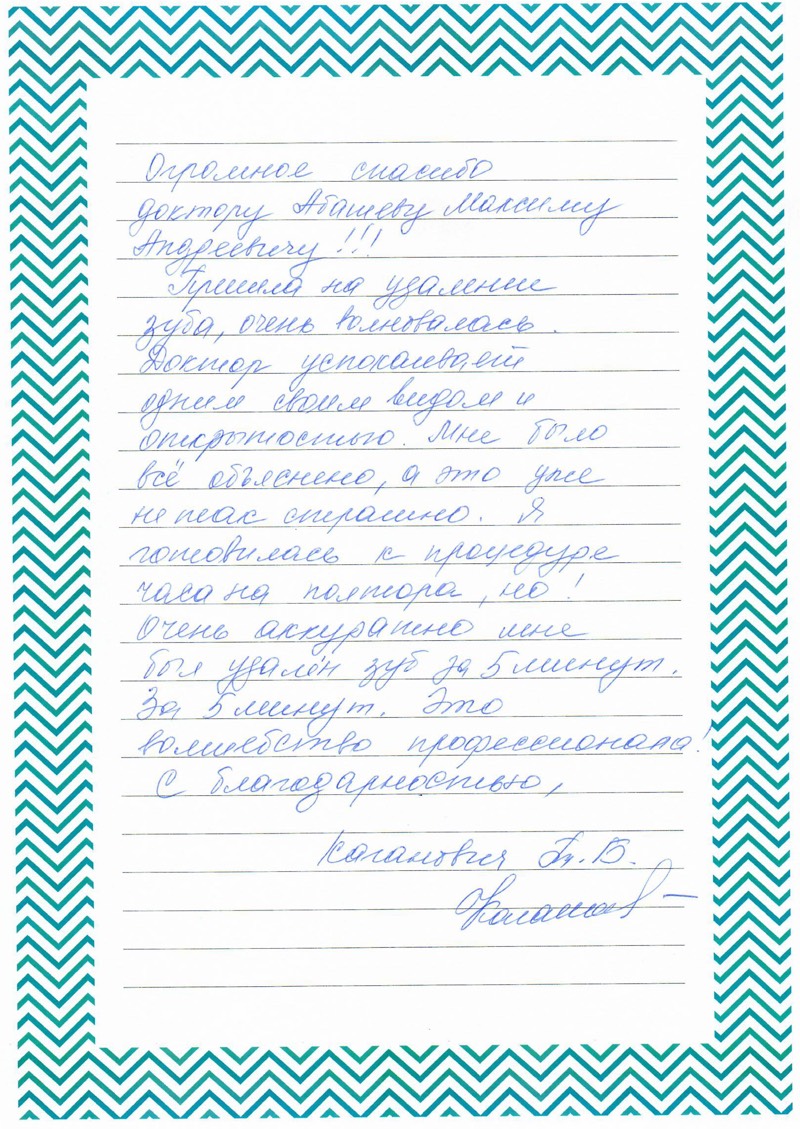 Огромное спасибо
доктору Абашеву Максиму
Андреевичу!!!
Пришла на удаление
зуба, очень волновалась.
Доктор успокаивает
одним своим видом и
открытостью. Мне было
всё объяснено, а это уже
не так страшно. Я
готовилась к процедуре
часа на полтора, но!
Очень аккуратно мне
был удалён зуб за 5 минут.
За 5 минут. Это
волшебство профессионала!
С благодарностью,
Каганович